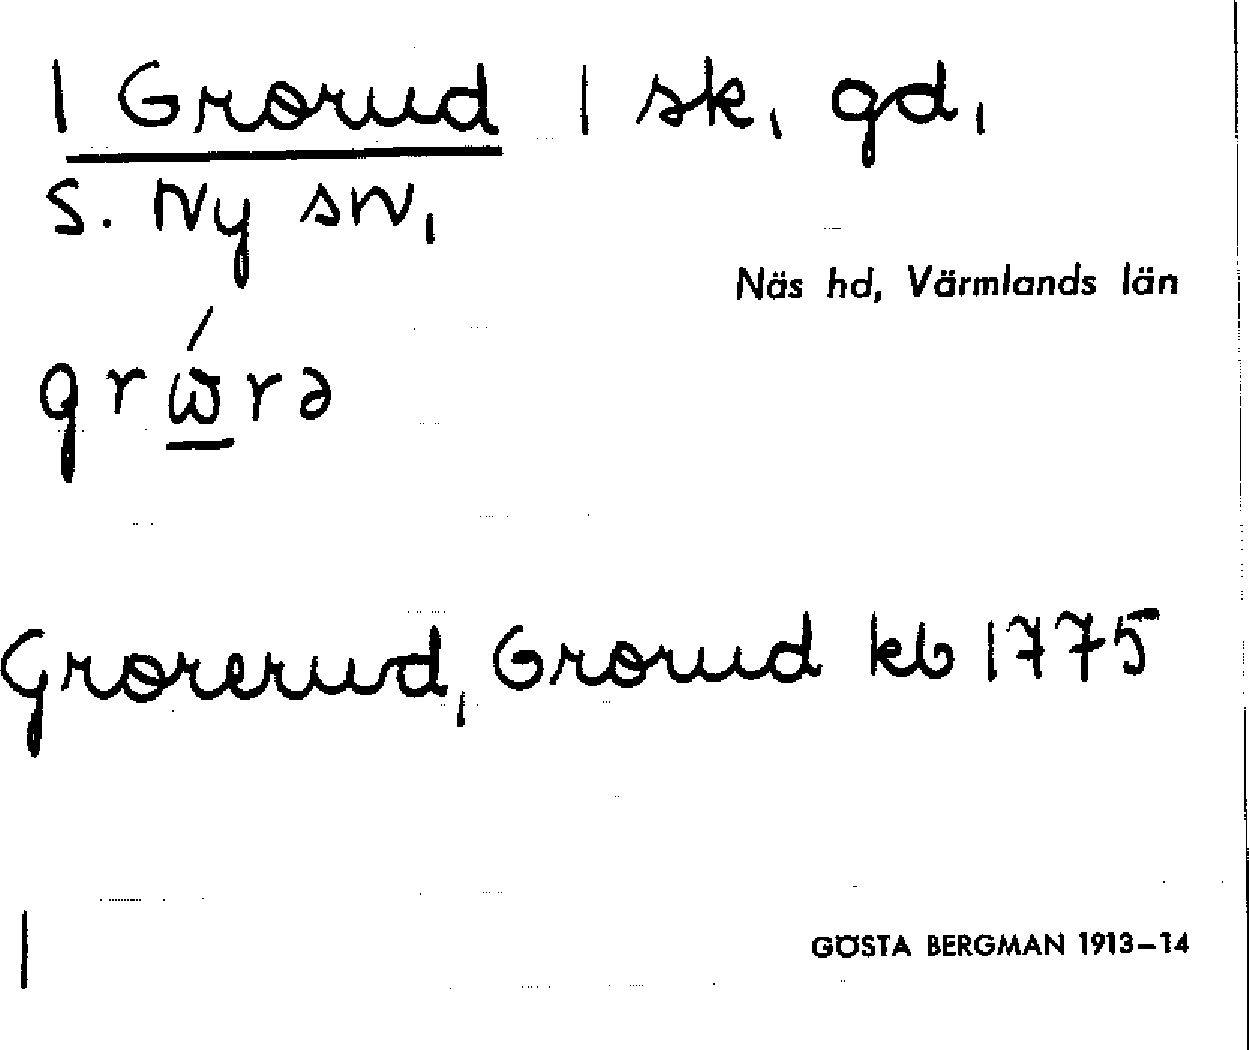 1 Grorud 1 sk, gd,
S. Ny sn,
Näs hd, Värmlands län
Grorerud, Grorud kb 1775
GÖSTA BERGMAN 1913–14